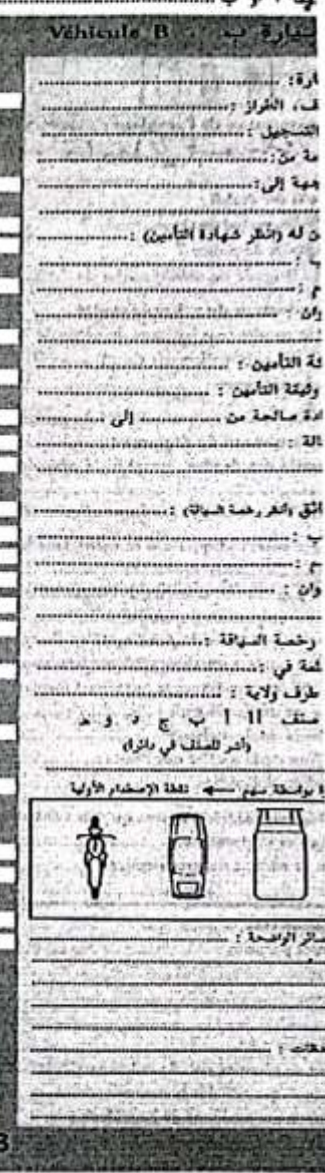 Véhicule B سيارة ب
ارة :
ف، الطراز :
التسجيل :
مة من :
جهة إلى :
ن له (انظر شهادة التأمين) :
ب :
م :
وان :
ئة التأمين :
وثيقة التأمين :
ادة صالحة من إلى
الة :
ائق (أنظر رخصة السياقة) :
ب :
م :
وان :
رخصة السياقة :
طرف ولاية :
صنف A1 أ ب ج د و هـ
(أشر للصنف في دائرة)
بواسطة سهم نقطة الإصطدام الأولية
سائر الواضحة :